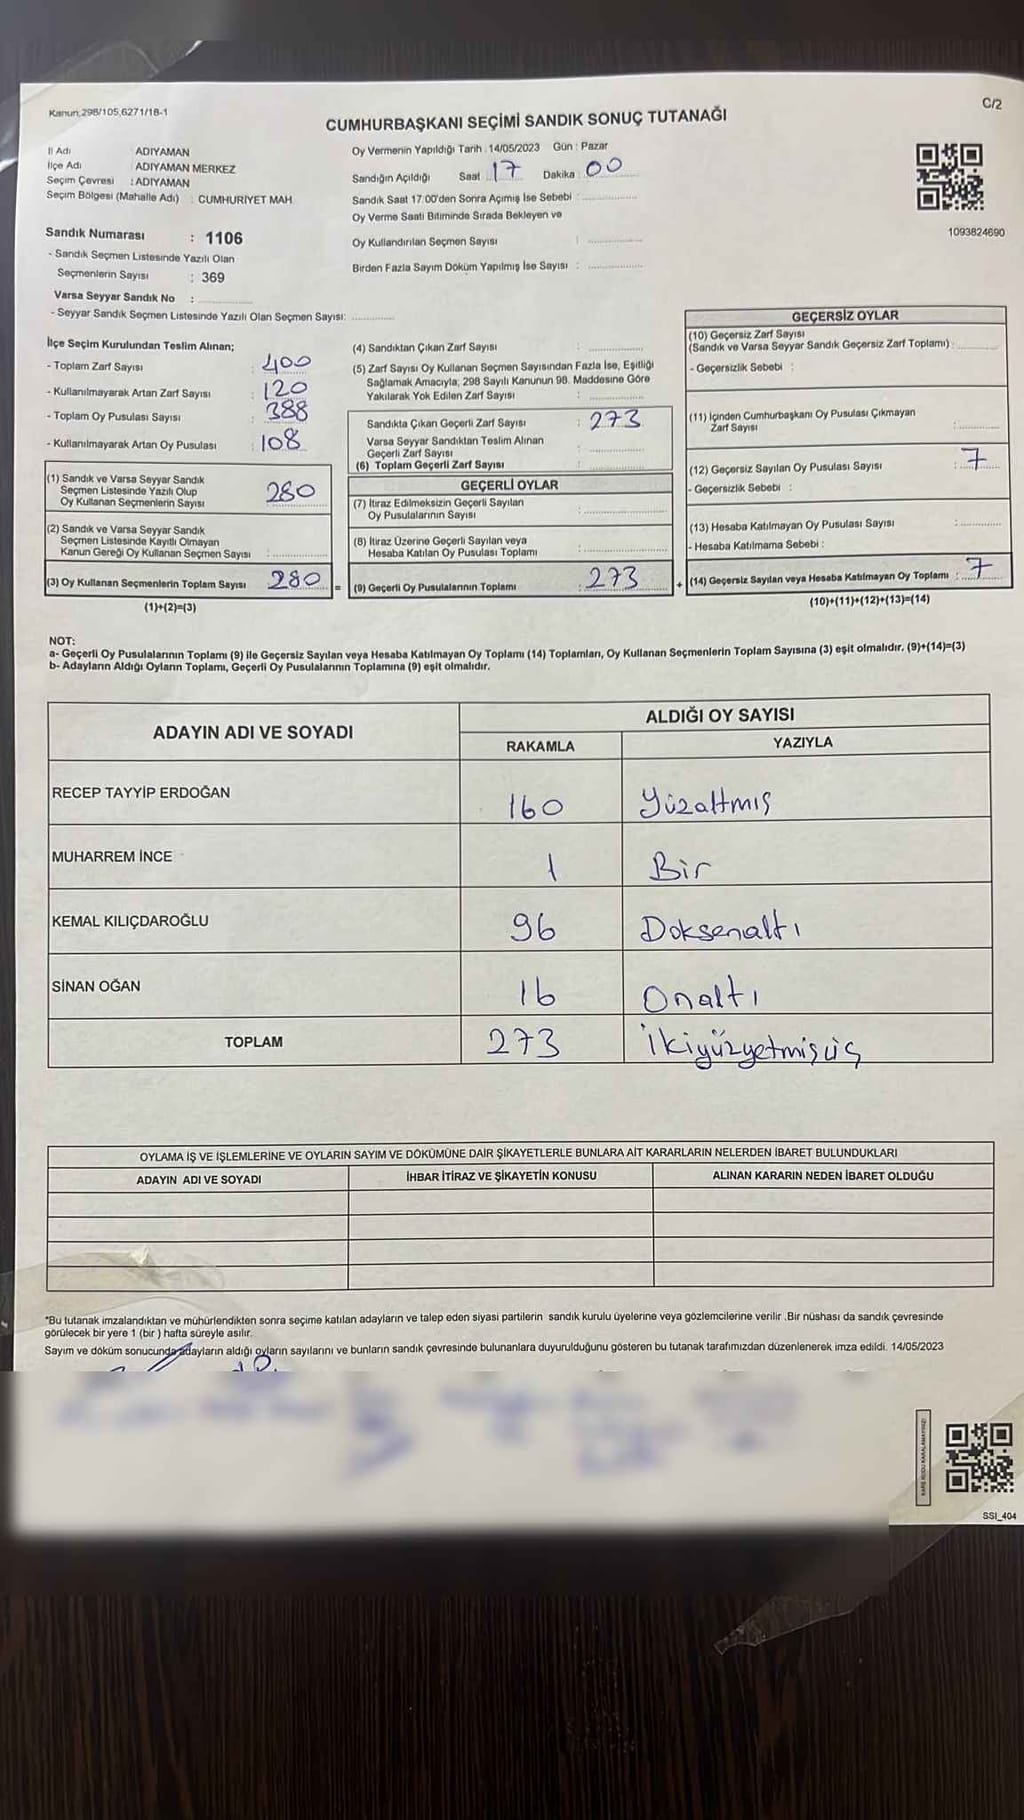 Kanun:298/105,6271/18-1
C/2
CUMHURBAŞKANI SEÇİMİ SANDIK SONUÇ TUTANAĞI
İl Adı ADIYAMAN
İlçe Adı ADIYAMAN MERKEZ
Seçim Çevresi : ADIYAMAN
Seçim Bölgesi (Mahalle Adı) : CUMHURİYET MAH.
Sandık Numarası : 1106
- Sandık Seçmen Listesinde Yazılı Olan
Seçmenlerin Sayısı : 369
Varsa Seyyar Sandık No :
- Seyyar Sandık Seçmen Listesinde Yazılı Olan Seçmen Sayısı:
Oy Vermenin Yapıldığı Tarih : 14/05/2023 Gün : Pazar
Sandığın Açıldığı Saat 17 Dakika : 00
Sandık Saat 17.00'den Sonra Açımış İse Sebebi :
Oy Verme Saati Bitiminde Sırada Bekleyen ve
Oy Kullandırılan Seçmen Sayısı :
Birden Fazla Sayım Döküm Yapılmış İse Sayısı :
1093824690
İlçe Seçim Kurulundan Teslim Alınan;
- Toplam Zarf Sayısı : 400
- Kullanılmayarak Artan Zarf Sayısı : 120
- Toplam Oy Pusulası Sayısı : 388
- Kullanılmayarak Artan Oy Pusulası : 108
(1) Sandık ve Varsa Seyyar Sandık
Seçmen Listesinde Yazılı Olup
Oy Kullanan Seçmenlerin Sayısı 280
(2) Sandık ve Varsa Seyyar Sandık
Seçmen Listesinde Kayıtlı Olmayan
Kanun Gereği Oy Kullanan Seçmen Sayısı :
(3) Oy Kullanan Seçmenlerin Toplam Sayısı 280 =
(1)+(2)=(3)
(4) Sandıktan Çıkan Zarf Sayısı :
(5) Zarf Sayısı Oy Kullanan Seçmen Sayısından Fazla İse, Eşitliği
Sağlamak Amacıyla; 298 Sayılı Kanunun 98. Maddesine Göre
Yakılarak Yok Edilen Zarf Sayısı :
Sandıkta Çıkan Geçerli Zarf Sayısı : 273
Varsa Seyyar Sandıktan Teslim Alınan
Geçerli Zarf Sayısı :
(6) Toplam Geçerli Zarf Sayısı :
GEÇERLİ OYLAR
(7) İtiraz Edilmeksizin Geçerli Sayılan
Oy Pusulalarının Sayısı :
(8) İtiraz Üzerine Geçerli Sayılan veya
Hesaba Katılan Oy Pusulası Toplamı :
(9) Geçerli Oy Pusulalarının Toplamı : 273 +
GEÇERSİZ OYLAR
(10) Geçersiz Zarf Sayısı
(Sandık ve Varsa Seyyar Sandık Geçersiz Zarf Toplamı) :
- Geçersizlik Sebebi :
(11) İçinden Cumhurbaşkanı Oy Pusulası Çıkmayan
Zarf Sayısı :
(12) Geçersiz Sayılan Oy Pusulası Sayısı : 7
- Geçersizlik Sebebi :
(13) Hesaba Katılmayan Oy Pusulası Sayısı :
- Hesaba Katılmama Sebebi :
(14) Geçersiz Sayılan veya Hesaba Katılmayan Oy Toplamı : 7
(10)+(11)+(12)+(13)=(14)
NOT:
a- Geçerli Oy Pusulalarının Toplamı (9) ile Geçersiz Sayılan veya Hesaba Katılmayan Oy Toplamı (14) Toplamları, Oy Kullanan Seçmenlerin Toplam Sayısına (3) eşit olmalıdır. (9)+(14)=(3)
b- Adayların Aldığı Oyların Toplamı, Geçerli Oy Pusulalarının Toplamına (9) eşit olmalıdır.
ADAYIN ADI VE SOYADI
ALDIĞI OY SAYISI
RAKAMLA YAZIYLA
RECEP TAYYİP ERDOĞAN 160 Yüzaltmış
MUHARREM İNCE 1 Bir
KEMAL KILIÇDAROĞLU 96 Doksenaltı
SİNAN OĞAN 16 Onaltı
TOPLAM 273 İkiyüzyetmişüç
OYLAMA İŞ VE İŞLEMLERİNE VE OYLARIN SAYIM VE DÖKÜMÜNE DAİR ŞİKAYETLERLE BUNLARA AİT KARARLARIN NELERDEN İBARET BULUNDUKLARI
ADAYIN ADI VE SOYADI İHBAR İTİRAZ VE ŞİKAYETİN KONUSU ALINAN KARARIN NEDEN İBARET OLDUĞU
*Bu tutanak imzalandıktan ve mühürlendikten sonra seçime katılan adayların ve talep eden siyasi partilerin sandık kurulu üyelerine veya gözlemcilerine verilir .Bir nüshası da sandık çevresinde
görülecek bir yere 1 (bir ) hafta süreyle asılır.
Sayım ve döküm sonucunda adayların aldığı oyların sayılarını ve bunların sandık çevresinde bulunanlara duyurulduğunu gösteren bu tutanak tarafımızdan düzenlenerek imza edildi. 14/05/2023
KARE KODU KARALAMAYINIZ!
SSI_404